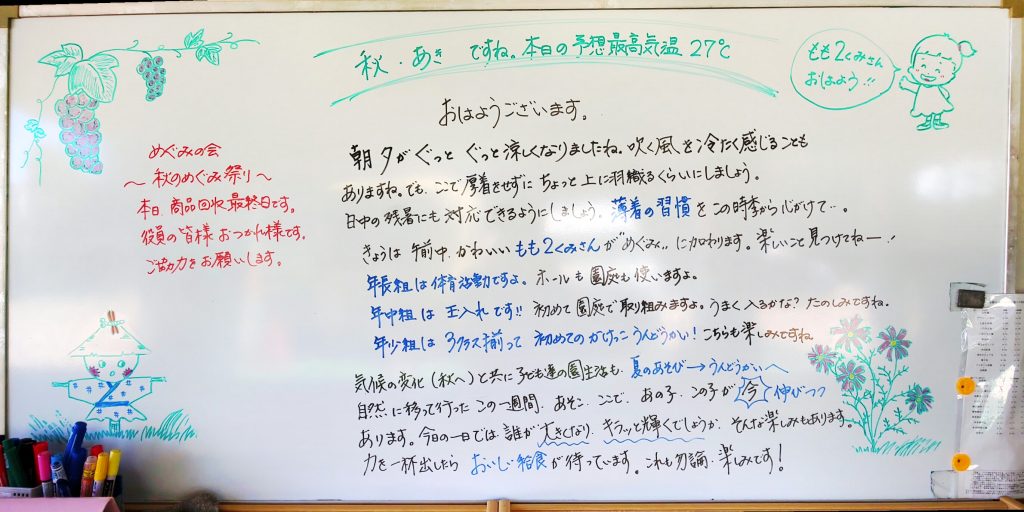 秋・あき ですね。本日の予想最高気温 27℃
もも2くみさん
おはよう!!
おはようございます。
めぐみの会
〜秋のめぐみ祭り〜
本日、商品回収最終日です。
役員の皆様 おつかれ様です。
ご協力をお願いします。
朝夕がぐっと ぐっと涼しくなりましたね。吹く風を冷たく感じることも
ありますね。でも、ここで厚着をせずに ちょっと上に羽織るくらいにしましょう。
日中の残暑にも対応できるようにしましょう。薄着の習慣をこの時季から心がけて…。
きょうは 午前中、かわいいもも2くみさんが"めぐみ"に加わります。楽しいこと見つけてねー!
年長組は体育活動ですよ。ホールも園庭も使いますよ。
年中組は 玉入れです!! 初めて園庭で取り組みますよ。うまく入るかな? たのしみですね。
年少組は 3クラス揃って 初めてのかけっこ うんどうかい! こちらも楽しみですね
気候の変化(秋へ)と共に子ども達の園生活も、夏のあそび→うんどうかいへ
自然に移って行ったこの一週間、あそこ、ここで、あの子、この子が 今 伸びつつ
あります。今日の一日では誰が大きくなり、キラッと輝くでしょうか、そんな楽しみもあります。
力を一杯出したら おいしい給食が待っています。これも勿論、楽しみです!